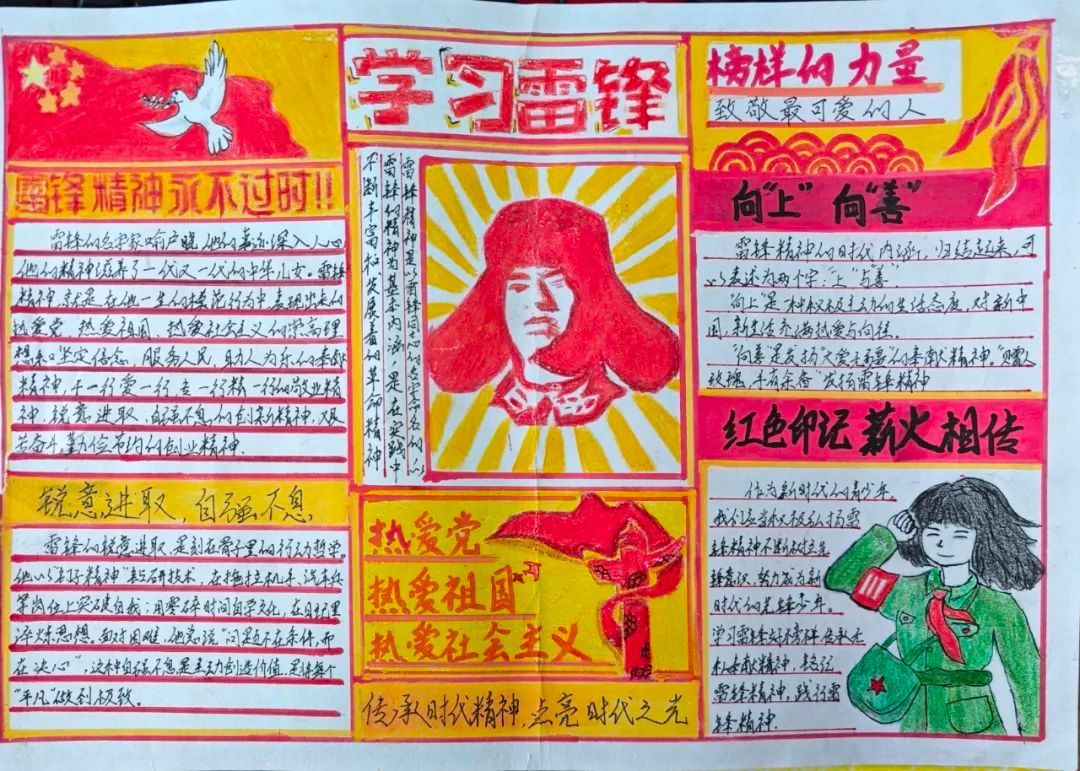 雷锋精神永不过时!!
雷锋的名字家喻户晓,他的事迹深入人心
他的精神滋养了一代又一代的中华儿女。雷锋
精神,就是在他一生的模范行为中表现出来的
热爱党、热爱祖国、热爱社会主义的崇高理
想和坚定信念,服务人民,助人为乐的奉献
精神,干一行爱一行,专一行精一行的敬业精
神,锐意进取、自强不息的创新精神,艰
苦奋斗,勤俭节约的创业精神.
锐意进取,自强不息
雷锋的锐意进取,是刻在骨子里的行动哲学。
他以“钉子精神”钻研技术,在拖拉机手、汽车兵
等岗位上突破自我;用零碎时间自学文化,在日记里
淬炼思想。面对困难,他常说“问题不在条件,而
在决心”,这种自强不息是主动创造价值,是将每个
“平凡”做到极致。
学习雷锋
雷锋精神是以雷锋同志的名字命名的,以
雷锋的精神为基本内涵,是在实践中
不断丰富和发展着的革命精神
热爱党
热爱祖国
热爱社会主义
传承时代精神,点亮时代之光
榜样的力量
致敬最可爱的人
向“上”向“善”
雷锋精神的时代内涵,归结起来,可
以表述为两个字:“上”与“善”
“向上”是一种积极主动的生活态度,对新中
国,新生活充满热爱与向往。
“向善”是发扬“大爱无疆”的奉献精神。“赠人
玫瑰,手有余香”发扬雷锋精神
红色印记 薪火相传
作为新时代的青少年,
我们应当积极弘扬雷
锋精神不断树立先
锋意识,努力成为新
时代的先锋少年。
学习雷锋好榜样,传承无
私奉献精神,铭记
雷锋精神,践行雷
锋精神.